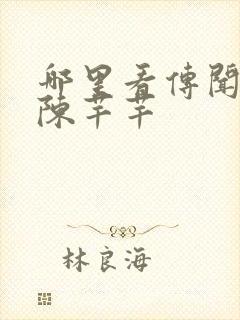 哪里看傳聞
陳芊芊
林良海